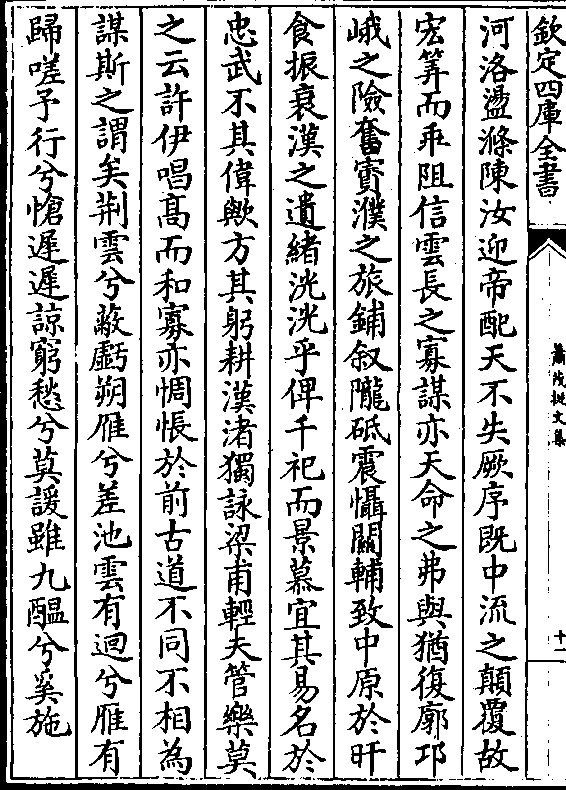 欽定四庫全書
蕭茂挺文集
十一
河洛盪滌陳汝迎帝配天不失厥序既中流之顛覆故
宏筭而乖阻信雲長之寡謀亦天命之弗與猶復廓邛
峨之險奮賨濮之旅鋪敘隴砥震懾關輔致中原於旰
食振衰漢之遺緒洸洸乎俾千祀而景慕宜其易名於
忠武不其偉歟方其躬耕漢渚獨詠梁甫輕夫管樂莫
之云許伊唱高而和寡亦惆悵於前古道不同不相為
謀斯之謂矣荆雲兮蔽虧朔雁兮差池雲有迴兮雁有
歸嗟予行兮愴遲遲諒窮愁兮莫諼雖九醖兮奚施